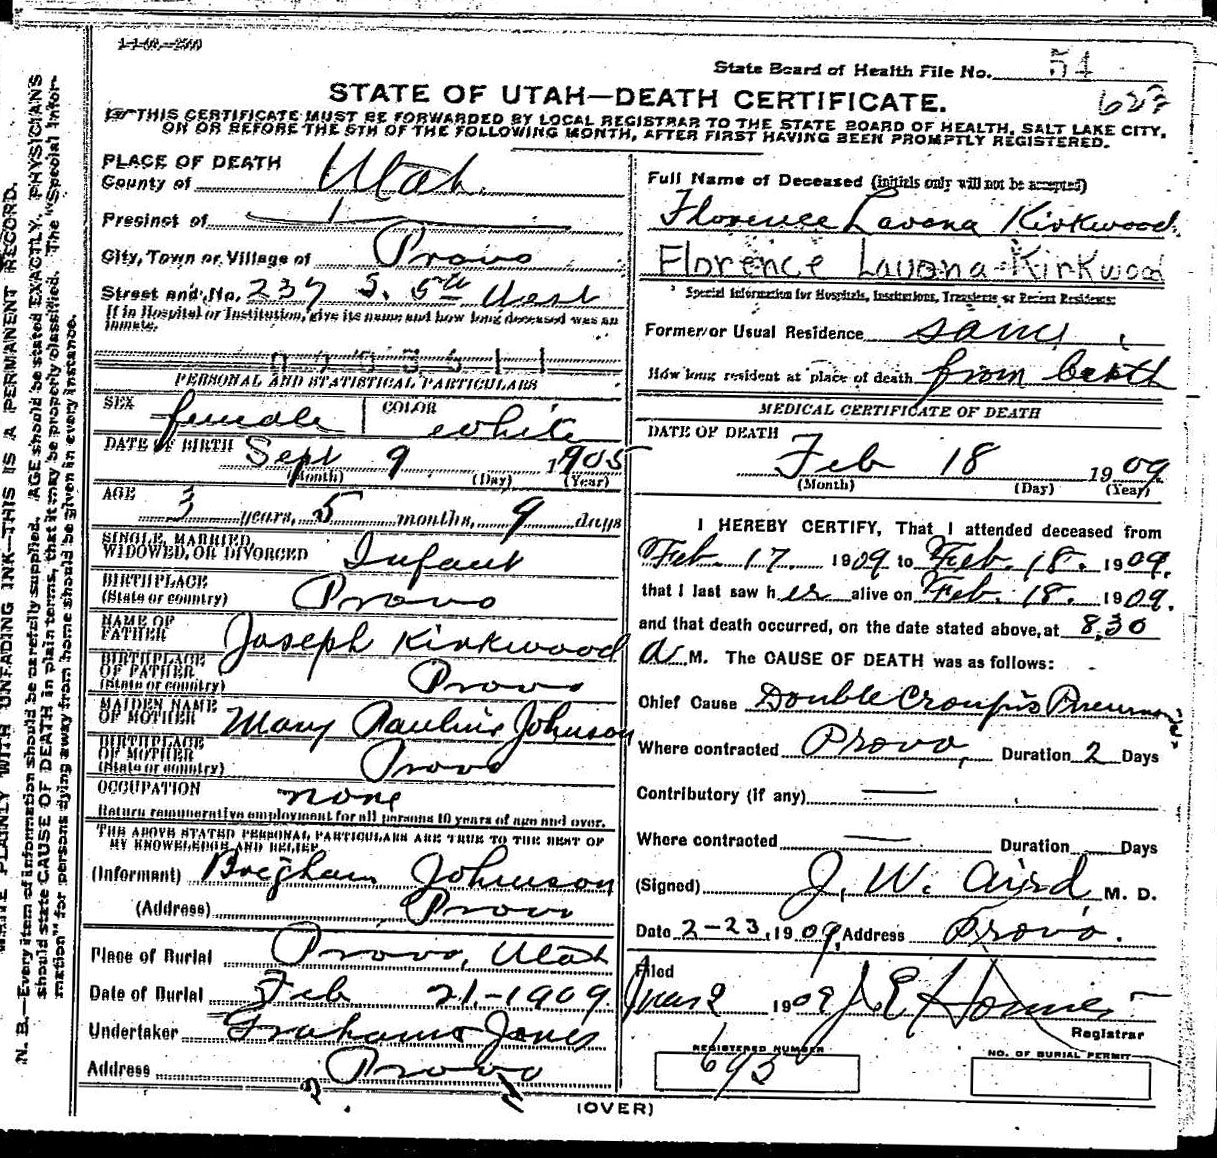 1-1-09.-2500
State Board of Health File No. 54
627
STATE OF UTAH—DEATH CERTIFICATE.
THIS CERTIFICATE MUST BE FORWARDED BY LOCAL REGISTRAR TO THE STATE BOARD OF HEALTH, SALT LAKE CITY,
ON OR BEFORE THE 5TH OF THE FOLLOWING MONTH, AFTER FIRST HAVING BEEN PROMPTLY REGISTERED.
N. B.—Every item of information should be carefully supplied. AGE should be stated EXACTLY. PHYSICIANS
should state CAUSE OF DEATH in plain terms, that it may be properly classified. The "Special Infor-
mation" for persons dying away from home should be given in every instance.
WRITE PLAINLY WITH UNFADING INK—THIS IS A PERMANENT RECORD.
PLACE OF DEATH
County of Utah.
Precinct of
City, Town or Village of Provo
Street and No. 237 S. 5th West
If in Hospital or Institution, give its name and how long deceased was an
inmate.
PERSONAL AND STATISTICAL PARTICULARS
SEX female COLOR white
DATE OF BIRTH Sept 9 1905
(Month) (Day) (Year)
AGE 3 years, 5 months, 9 days
SINGLE, MARRIED,
WIDOWED, OR DIVORCED Infant
BIRTHPLACE
(State or country) Provo
NAME OF
FATHER Joseph Kirkwood
BIRTHPLACE
OF FATHER
(State or country) Provo
MAIDEN NAME
OF MOTHER Mary Pauline Johnson
BIRTHPLACE
OF MOTHER
(State or country) Provo
OCCUPATION none
Return remunerative employment for all persons 10 years of age and over.
THE ABOVE STATED PERSONAL PARTICULARS ARE TRUE TO THE BEST OF
MY KNOWLEDGE AND BELIEF
(Informant) Brigham Johnson
(Address) Provo
Place of Burial Provo, Utah
Date of Burial Feb 21.-1909.
Undertaker Graham Jones
Address Provo
Full Name of Deceased (initials only will not be accepted)
Florence Lavona Kirkwood.
Florence Lavona Kirkwood
Special Information for Hospitals, Institutions, Transients or Recent Residents:
Former or Usual Residence same
How long resident at place of death from birth
MEDICAL CERTIFICATE OF DEATH
DATE OF DEATH
Feb 18 1909
(Month) (Day) (Year)
I HEREBY CERTIFY, That I attended deceased from
Feb. 17. 1909 to Feb. 18. 1909.
that I last saw her alive on Feb. 18. 1909.
and that death occurred, on the date stated above, at 8,30
a M. The CAUSE OF DEATH was as follows:
Chief Cause Double Croupus Pneumonia
Where contracted Provo, Duration 2 Days
Contributory (if any)
Where contracted Duration Days
(Signed) J. W. Aird M. D.
Date 2-23, 1909, Address Provo.
Filed
Mar 2 1909 J E
Registrar
REGISTERED NUMBER
693
NO. OF BURIAL PERMIT
(OVER)